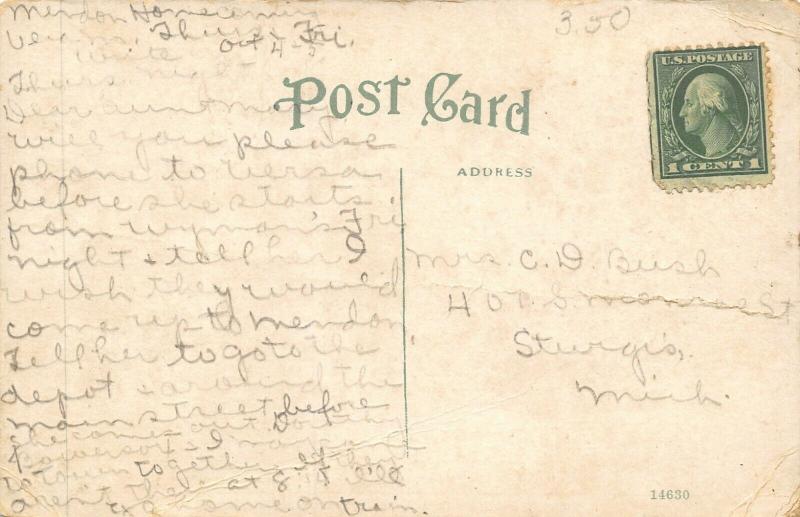 Mendon Homecoming
Thurs. Fri.
write Oct 4-5
Thurs. night
Dear aunt
will you please
phone to Versa
before she starts
from Wyman's Fri
night & tell her I
wish they would
come up to Mendon
Tell her to go to the
depot & around the
main street before
she comes out. Dorothy
Powers & I
town together. If
aren't there at 8:15 I'll
go home on train.
3.50
U.S. POSTAGE
1 CENT 1
Post Card
ADDRESS
Mrs. C. D. Bush
401 S. Monroe St
Sturgis,
Mich.
14630